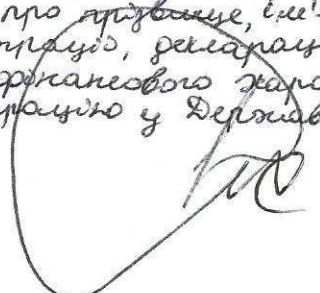 про прізвище, ім'
трацію, декларац
фінансового хара
рацію у Держав